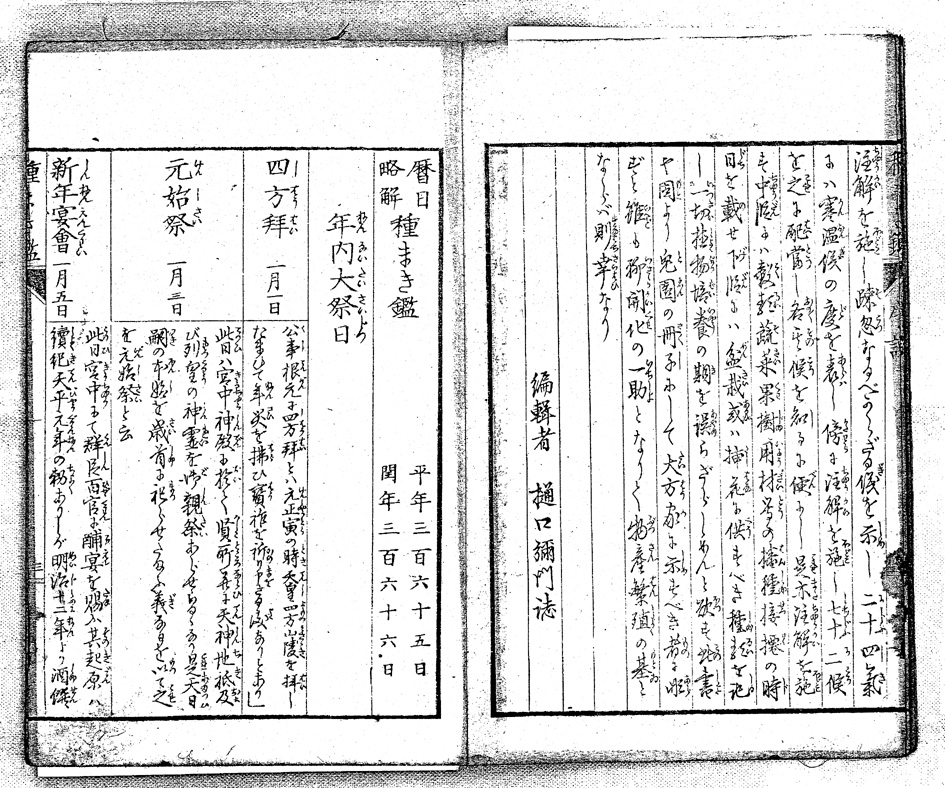 注解を施し疎忽なるべからざる候を示し二十四氣
にハ寒温候の度を表し傍に注解を施し七十二候
を之に配當し各其候を知るに便にし是亦注解を施
す中段にハ穀類蔬菜果樹用材等の播種接換の時
日を載せ下段にハ盆栽或ハ挿花に供すべき種類を記
し一切植物培養の期を誤らざらしめんと欲す此書
や固より兎園の冊子にして大方家に示すべき者に非
ずと雖も抑開化の一助となりて物産繁殖の基と
ならバ則幸なり
編輯者 樋口彌門誌
暦日略解 種まき鑑
平年三百六十五日
閏年三百六十六日
年内大祭日
四方拜 一月一日
公事根元に四方拜とハ元正寅の時天皇四方山陵を拜し
たまひて年災を拂ひ寳祚を祈り申さるる儀ありと申り
元始祭 一月三日
此日ハ宮中神殿に於て賢所并に天神地祇及
び列聖の神霊を御親祭あらせらるるあり是天日
嗣の本始を歳首に祀らせたまふ義なるを以て之
を元始祭と云
新年宴會 一月五日
此日宮中にて群臣百官に酺宴を賜ふ其起原ハ
續紀天平元年の初ありしが明治十二年より酒饌